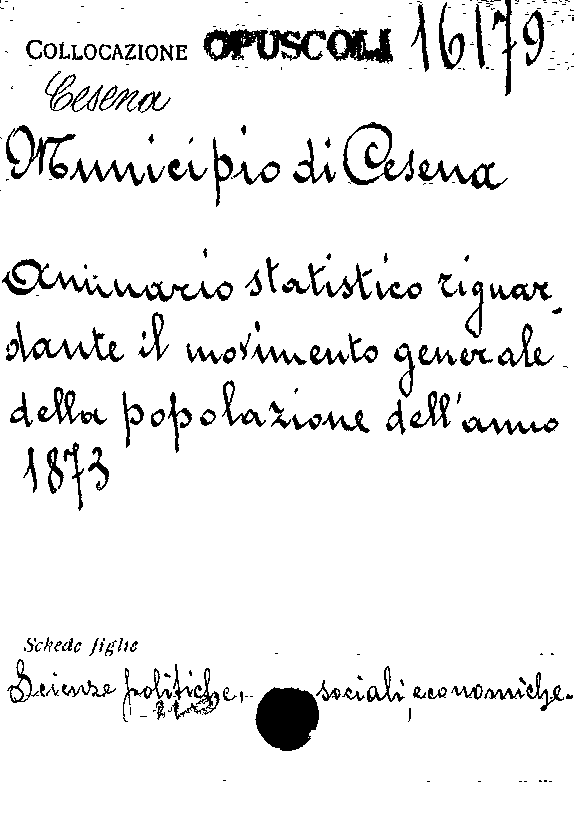 COLLOCAZIONE OPUSCOLI 16179
Cesena
Municipio di Cesena
Annuario statistico riguar-
dante il movimento generale
della popolazione dell'anno
1873
Schede figlie
Scienze politiche, sociali, economiche.